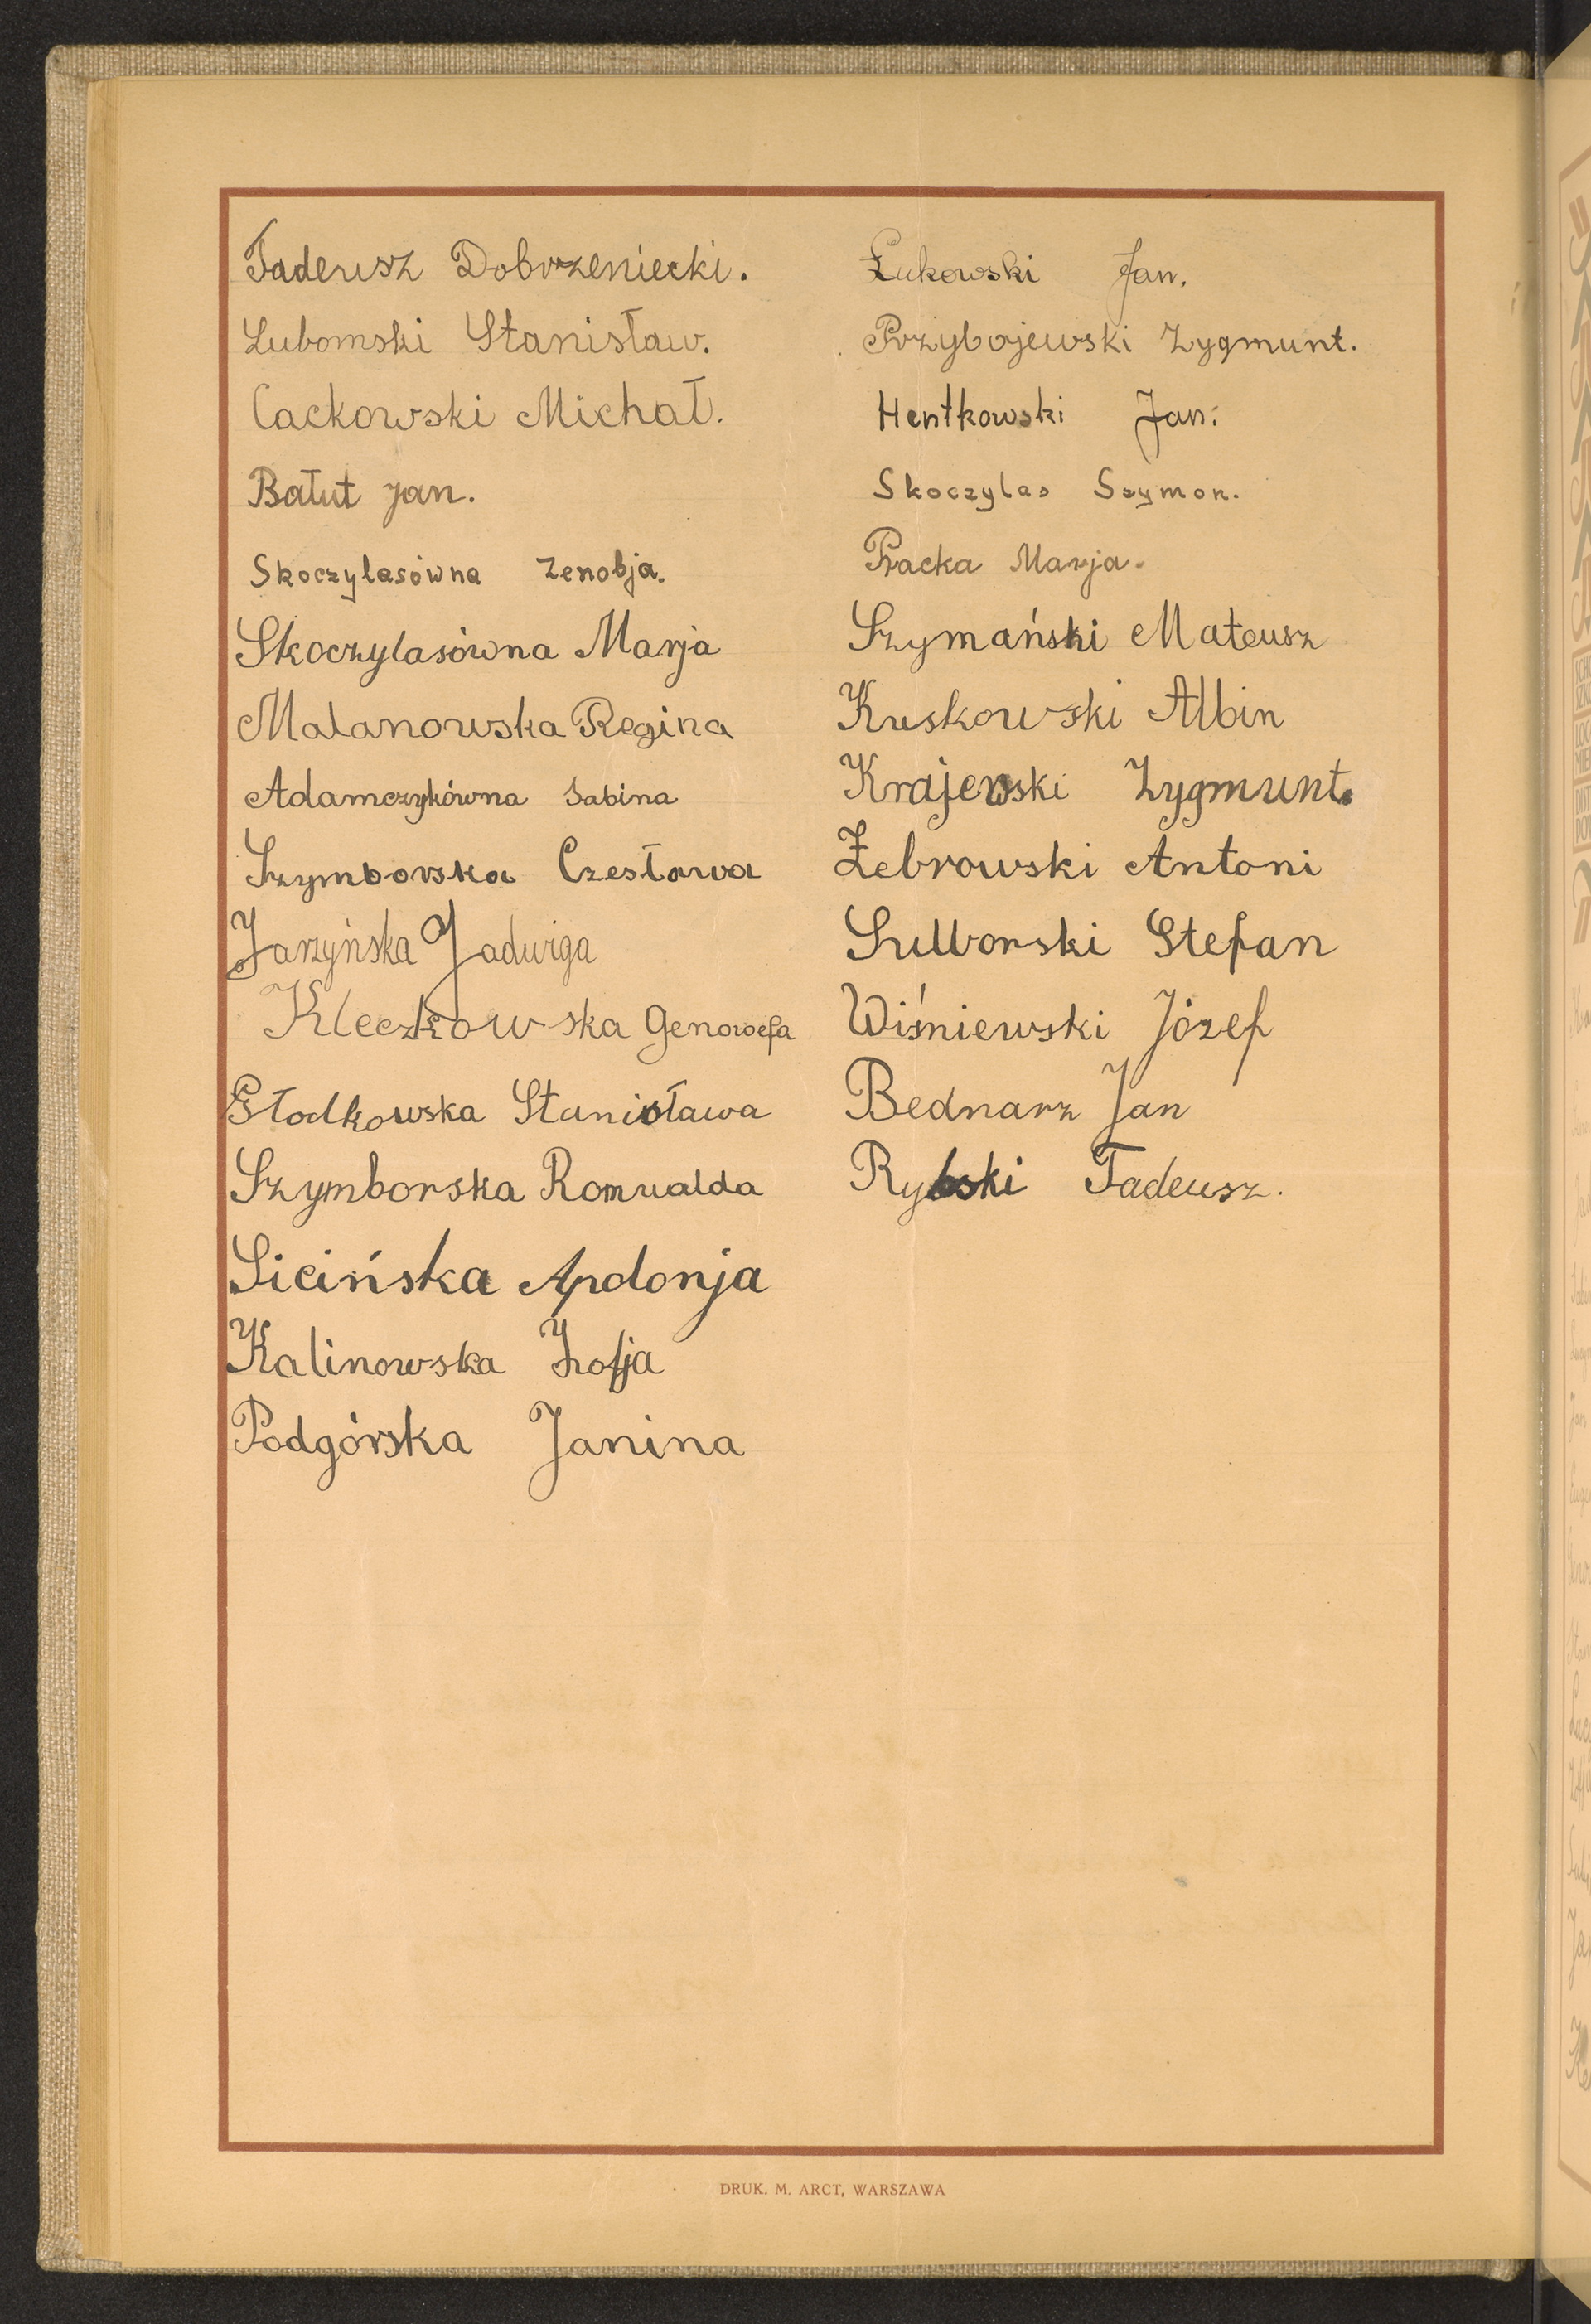 Tadeusz Dobrzeniecki.
Lubomski Stanisław.
Cackowski Michał.
Bałut Jan.
Skoczylasówna Zenobja.
Skoczylasówna Marja
Malanowska Regina
Adamczykówna Sabina
Szymborska Czesława
Jarzyńska Jadwiga
Kleczkowska Genowefa
Głodkowska Stanisława
Szymborska Romualda
Sicińska Apolonja
Kalinowska Zofja
Podgórska Janina
Łukowski Jan.
Przybojewski Zygmunt.
Hentkowski Jan.
Skoczylas Szymon.
Pracka Marja.
Szymański Mateusz
Kuskowski Albin
Krajewski Zygmunt.
Żebrowski Antoni
Sulborski Stefan
Wiśniewski Józef
Bednarz Jan
Rybski Tadeusz.
DRUK. M. ARCT, WARSZAWA